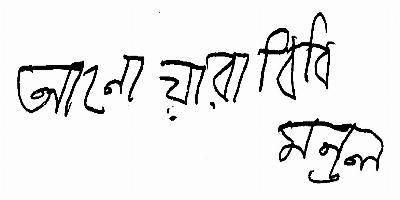 আনোয়ারা বিবি
মনুল